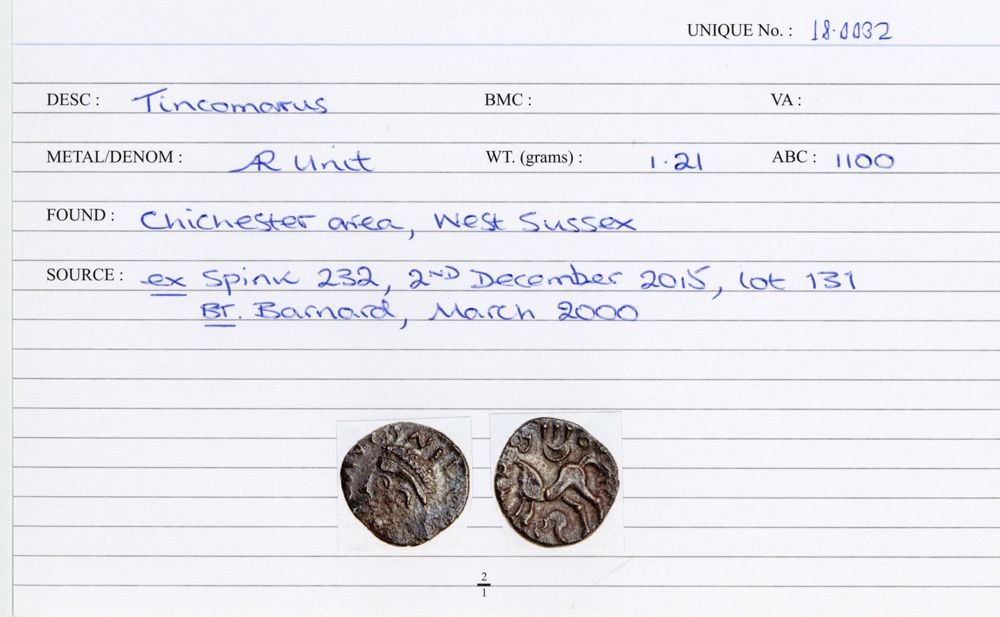 UNIQUE No. : 18.0032
DESC : Tincomarus BMC : VA :
METAL/DENOM : AR Unit WT. (grams) : 1.21 ABC : 1100
FOUND : Chichester area, West Sussex
SOURCE : ex Spink 232, 2ND December 2015, lot 131
BT. Barnard, March 2000
2
1